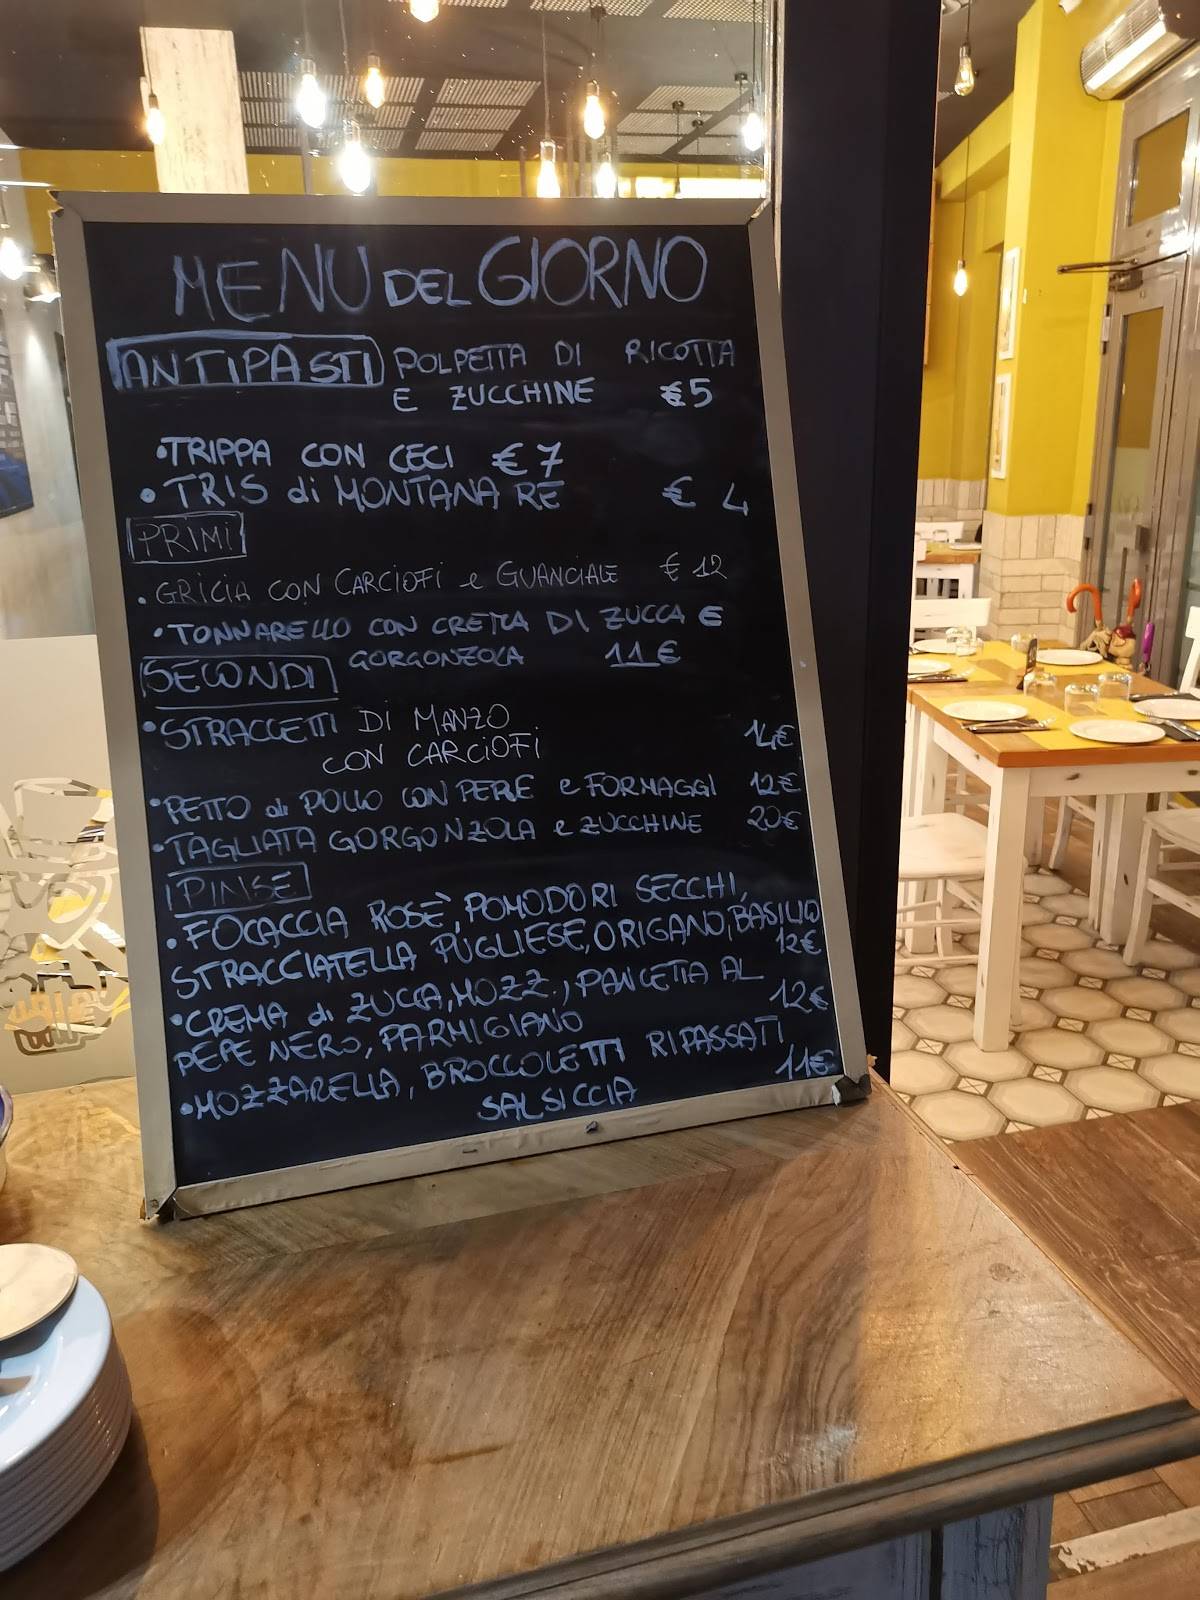 MENU DEL GIORNO
ANTIPASTI POLPETTA DI RICOTTA
E ZUCCHINE €5
•TRIPPA CON CECI €7
•TRIS di MONTANARE € 4
PRIMI
•GRICIA CON CARCIOFI e GUANCIALE € 12
•TONNARELLO CON CREMA DI ZUCCA E
GORGONZOLA 11€
SECONDI
•STRACCETTI DI MANZO
CON CARCIOFI 14€
•PETTO di POLLO CON PERE e FORMAGGI 12€
•TAGLIATA GORGONZOLA e ZUCCHINE 20€
PINSE
•FOCACCIA ROSÈ, POMODORI SECCHI,
STRACCIATELLA PUGLIESE, ORIGANO, BASILICO
12€
•CREMA di ZUCCA, MOZZ., PANCETTA AL
PEPE NERO, PARMIGIANO 12€
•MOZZARELLA, BROCCOLETTI RIPASSATI
SALSICCIA 11€